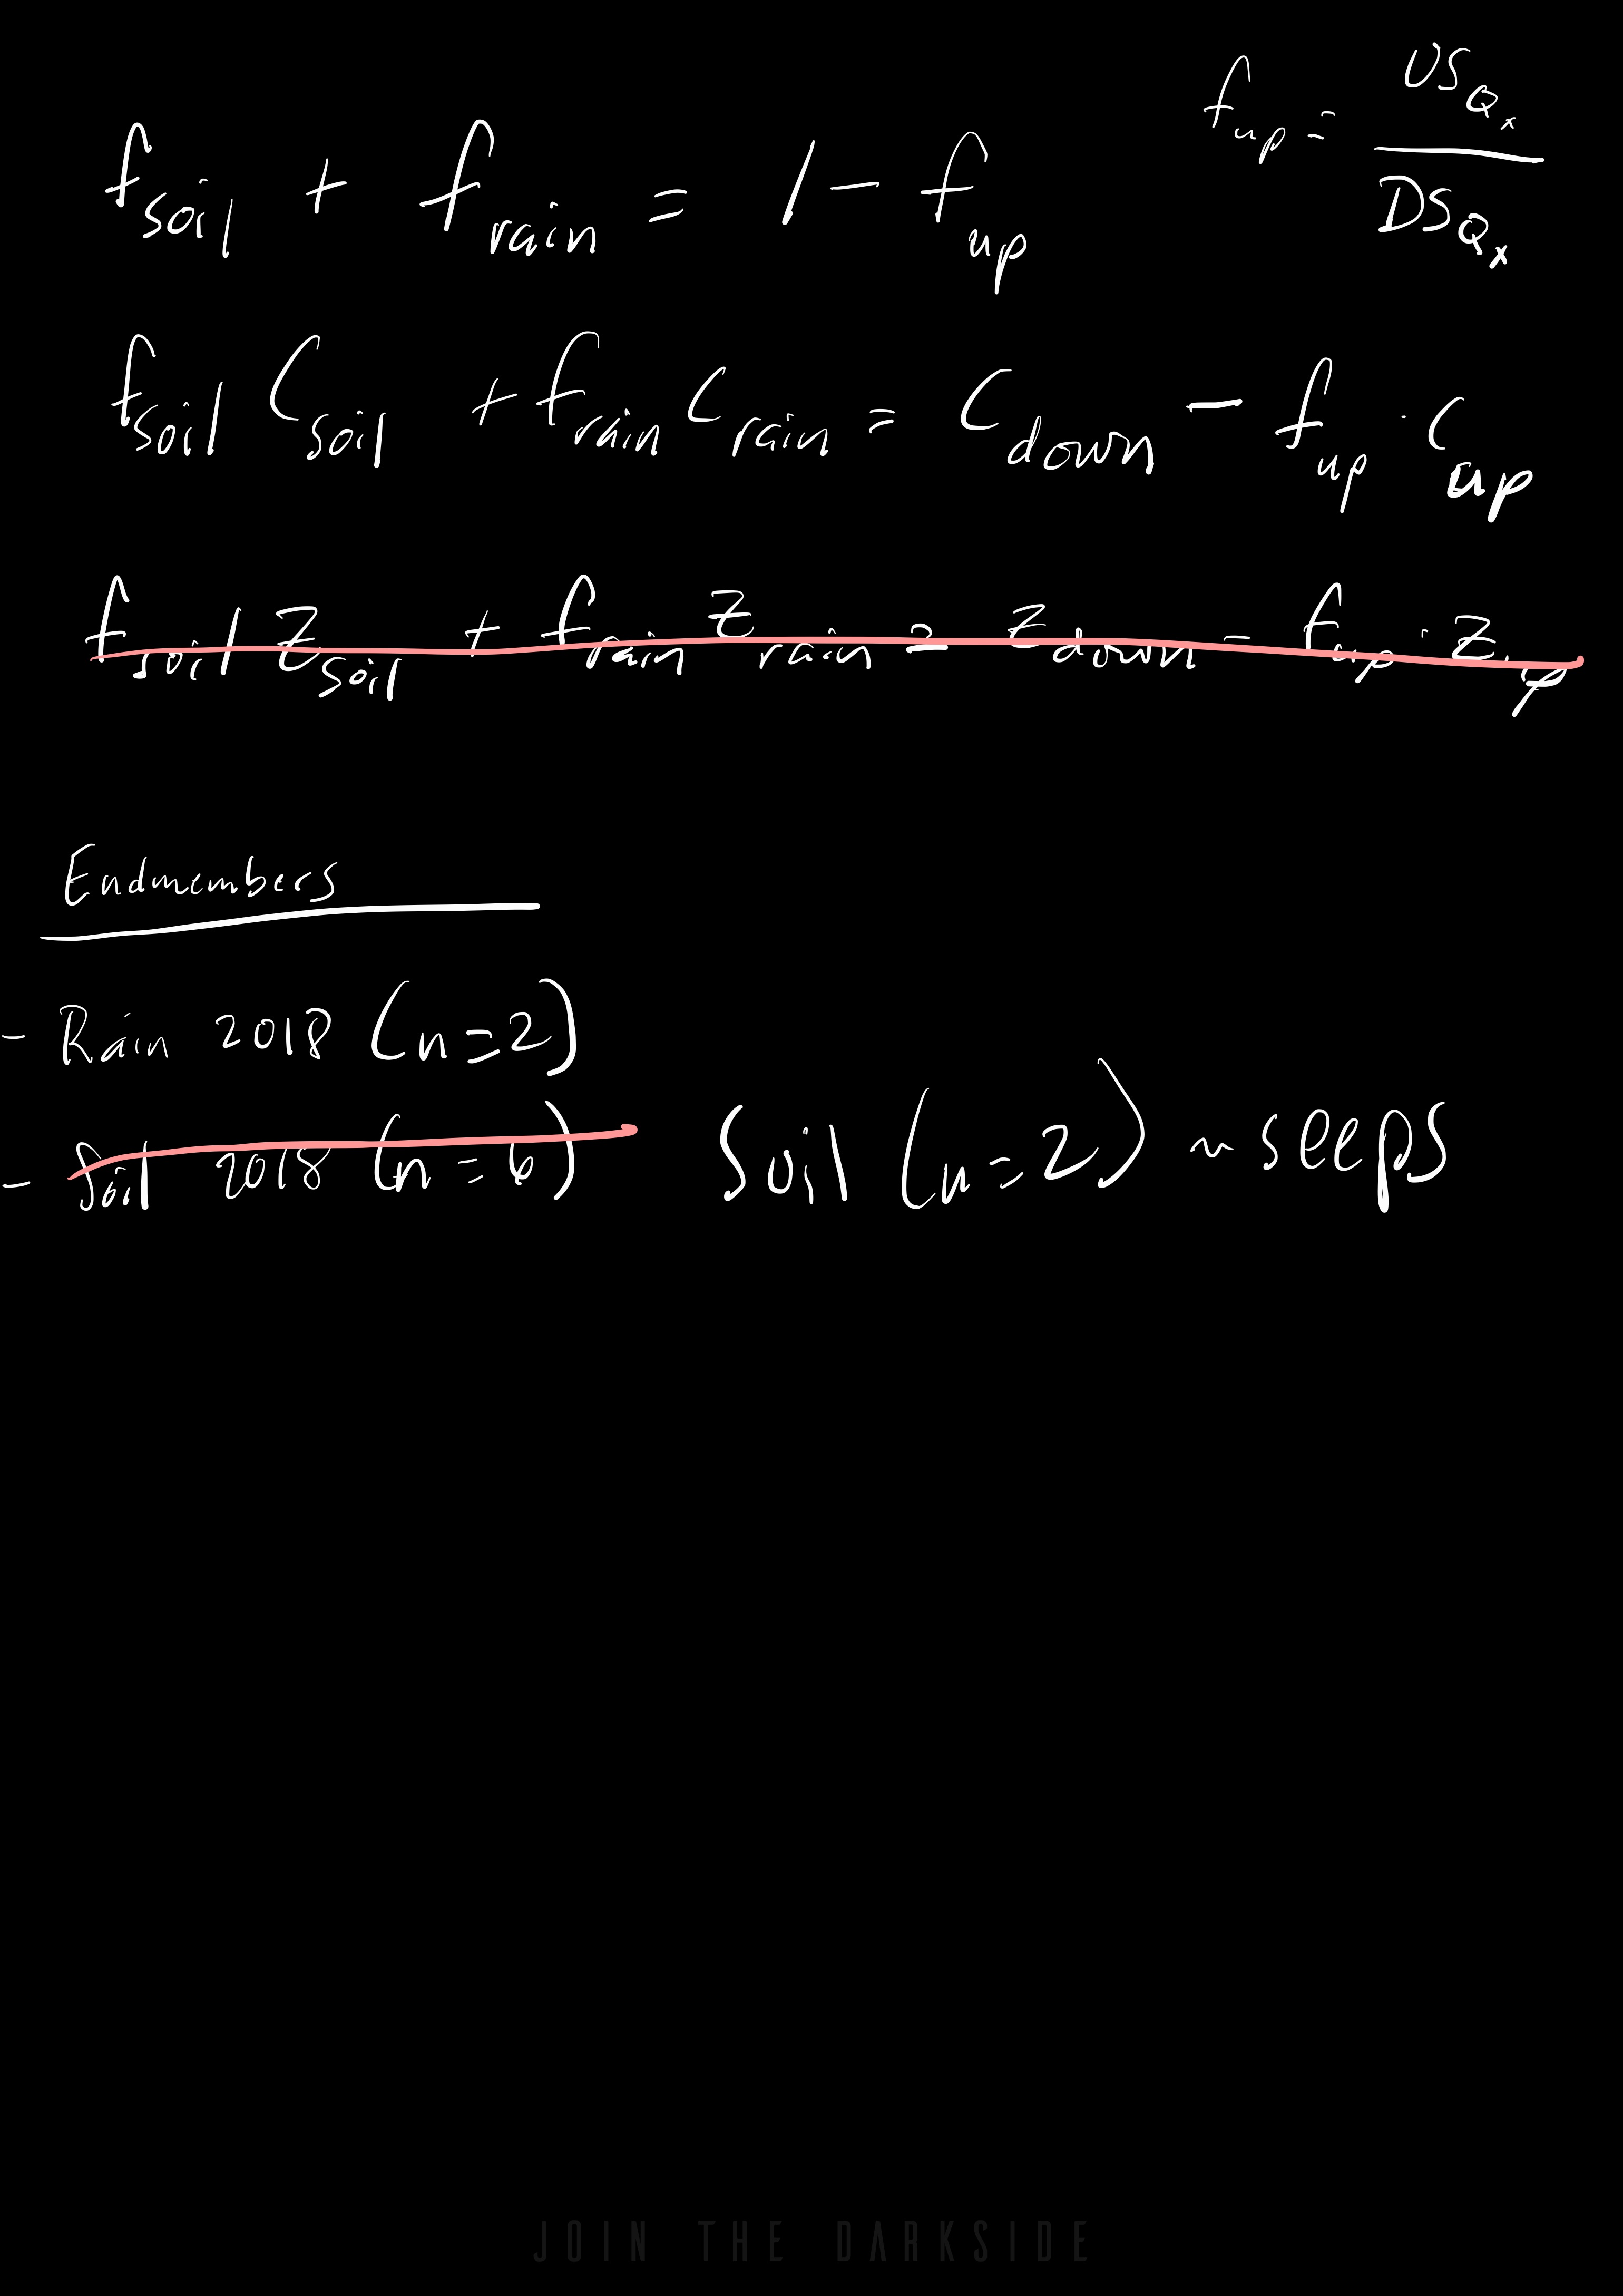 f_soil + f_rain = 1 - f_up
f_up = US_Q_x / DS_Q_x
f_soil C_soil + f_rain C_rain = C_down - f_up · C_up
f_soil Z_soil + f_rain Z_rain = Z_down - f_up · Z_up
Endmembers
- Rain 2018 (n=2)
- Soil 2018 (n=6) Soil (n=2) ~ seeps
JOIN THE DARKSIDE